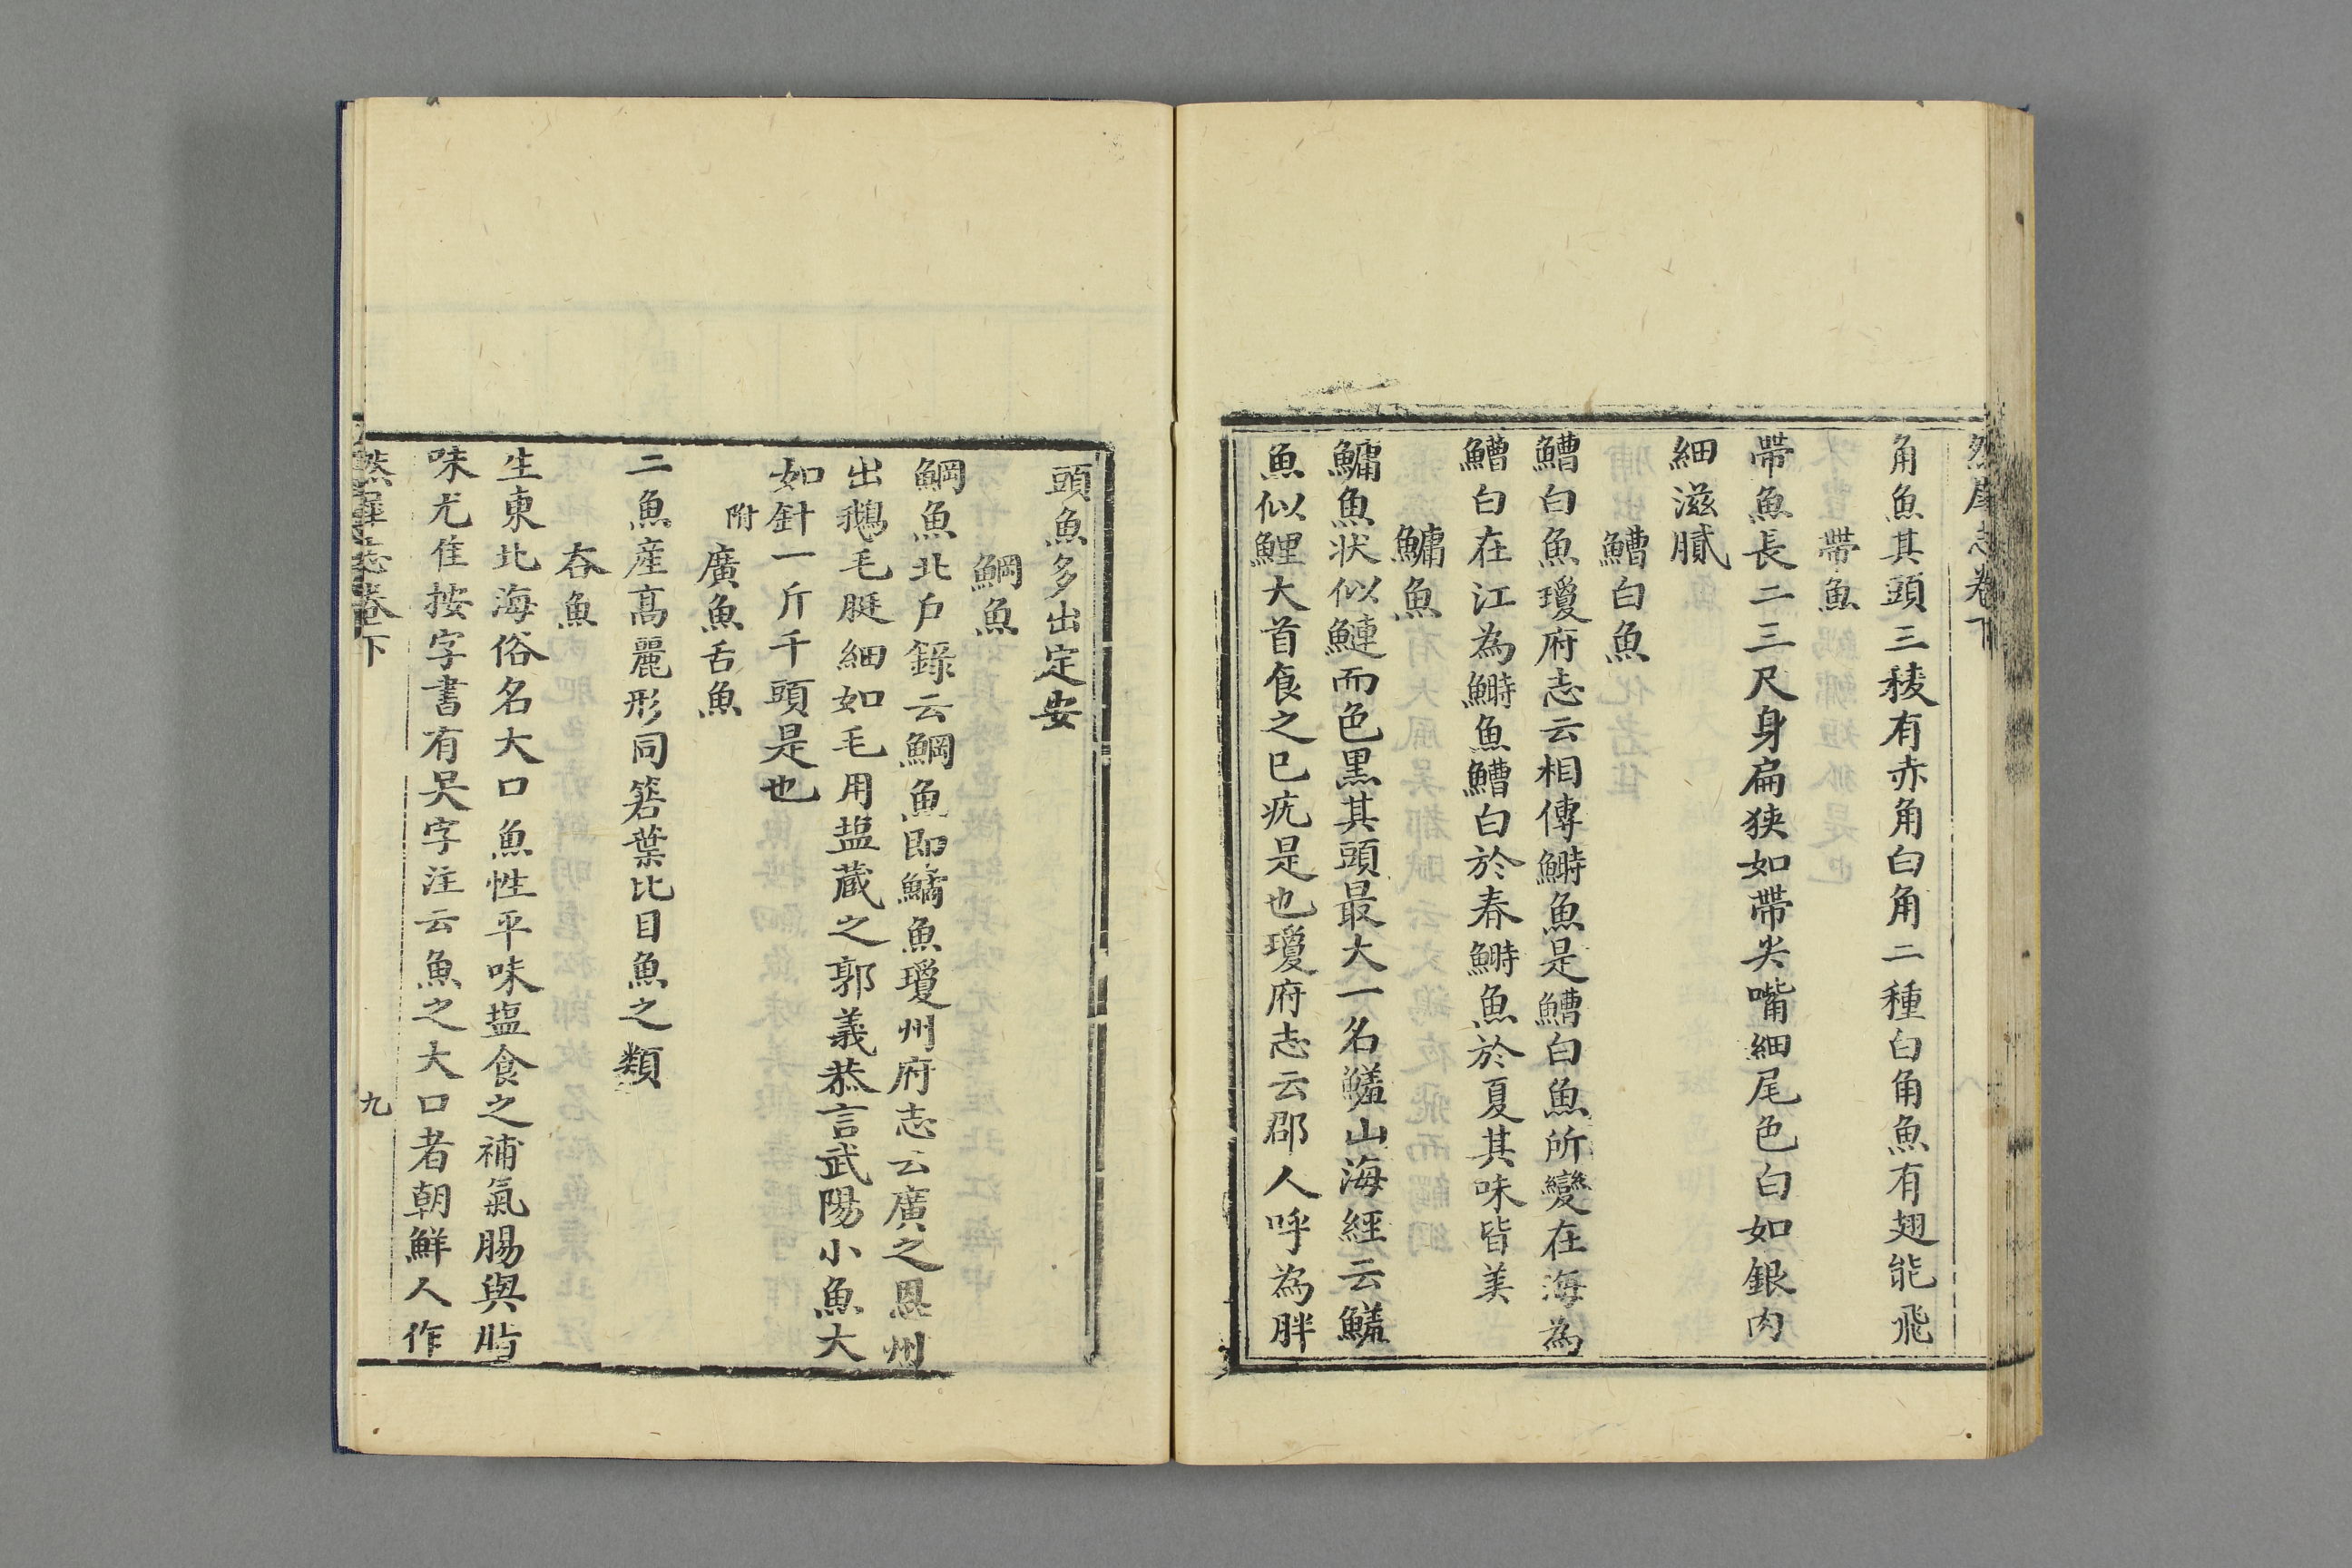 然犀志卷下
角魚其頭三稜有赤角白角二種白角魚有翅能飛
帶魚
帶魚長二三尺身扁狹如帶尖嘴細尾色白如銀肉
細滋膩
鰽白魚
鰽白魚瓊府志云相傳鰣魚是鰽白魚所變在海為
鰽白在江為鰣魚鰽白於春鰣魚於夏其味皆美
鱅魚
鱅魚狀似鰱而色黒其頭最大一名鱃山海經云鱃
魚似鯉大首食之已疣是也瓊府志云郡人呼為胖
頭魚多出定安
鯛魚
鯛魚北户錄云鯛魚即鱊魚瓊州府志云廣之恩州
出鵝毛脡細如毛用塩藏之郭義恭言武陽小魚大
如針一斤千頭是也
附廣魚舌魚
二魚產髙麗形同箬葉比目魚之類
夻魚
生東北海俗名大口魚性平味塩食之補氣腸與脂
味尤佳按字書有吴字注云魚之大口者朝鮮人作
然犀志卷下 九